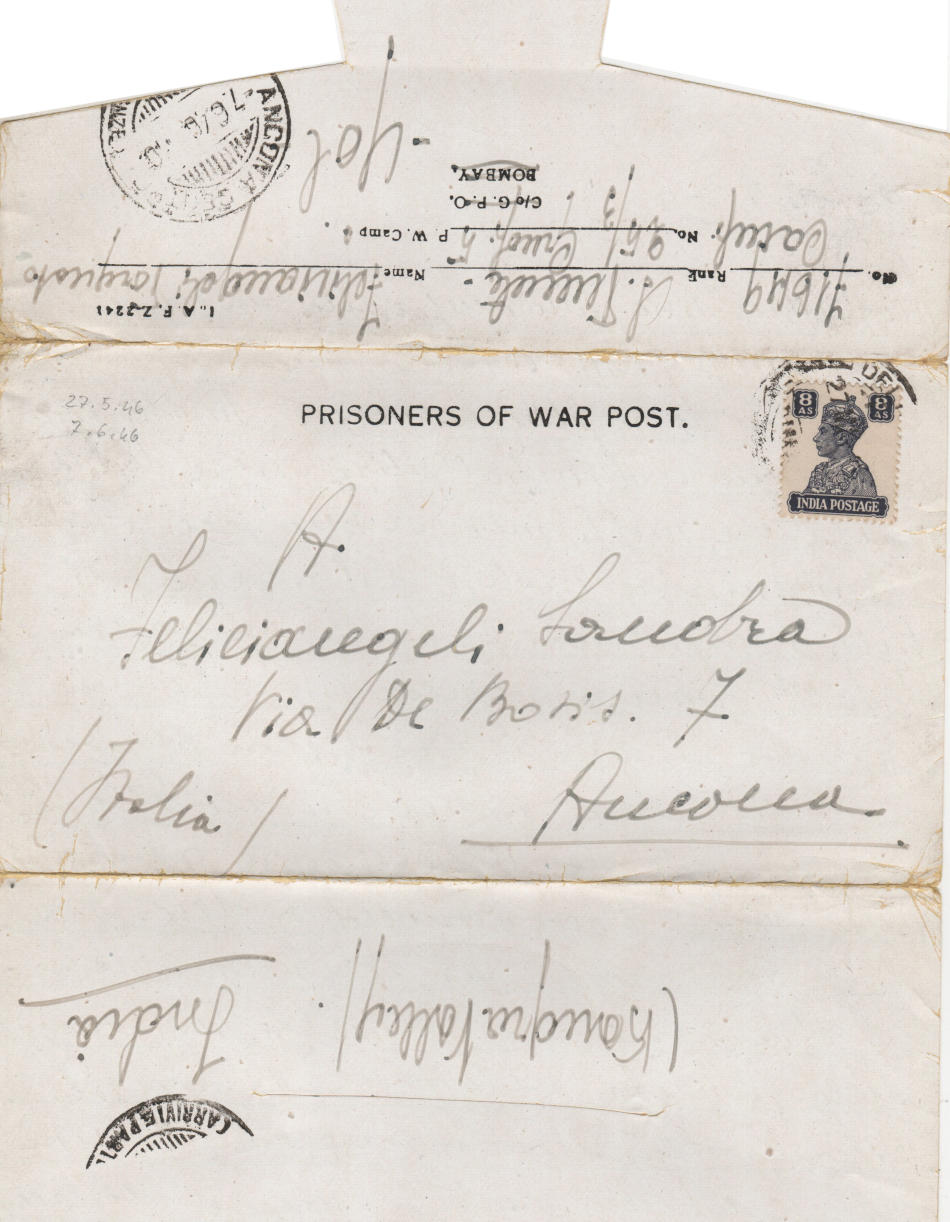 I., A. F. Z.-2241
No. 71649 Rank S. Tenente - Name Feliciangeli
No. 25/3 P. W. Camp:
C/o G. P. O.
BOMBAY.
- Yol -
ANCONA
7.6.46
27.5.46
7.6.46
PRISONERS OF WAR POST.
8 AS 8 AS
INDIA POSTAGE
A.
Feliciangeli Sandra
Via De Bosis. 7
Ancona.
(Italia)
(Kangra Valley)
India
(ARRIVI E PART.